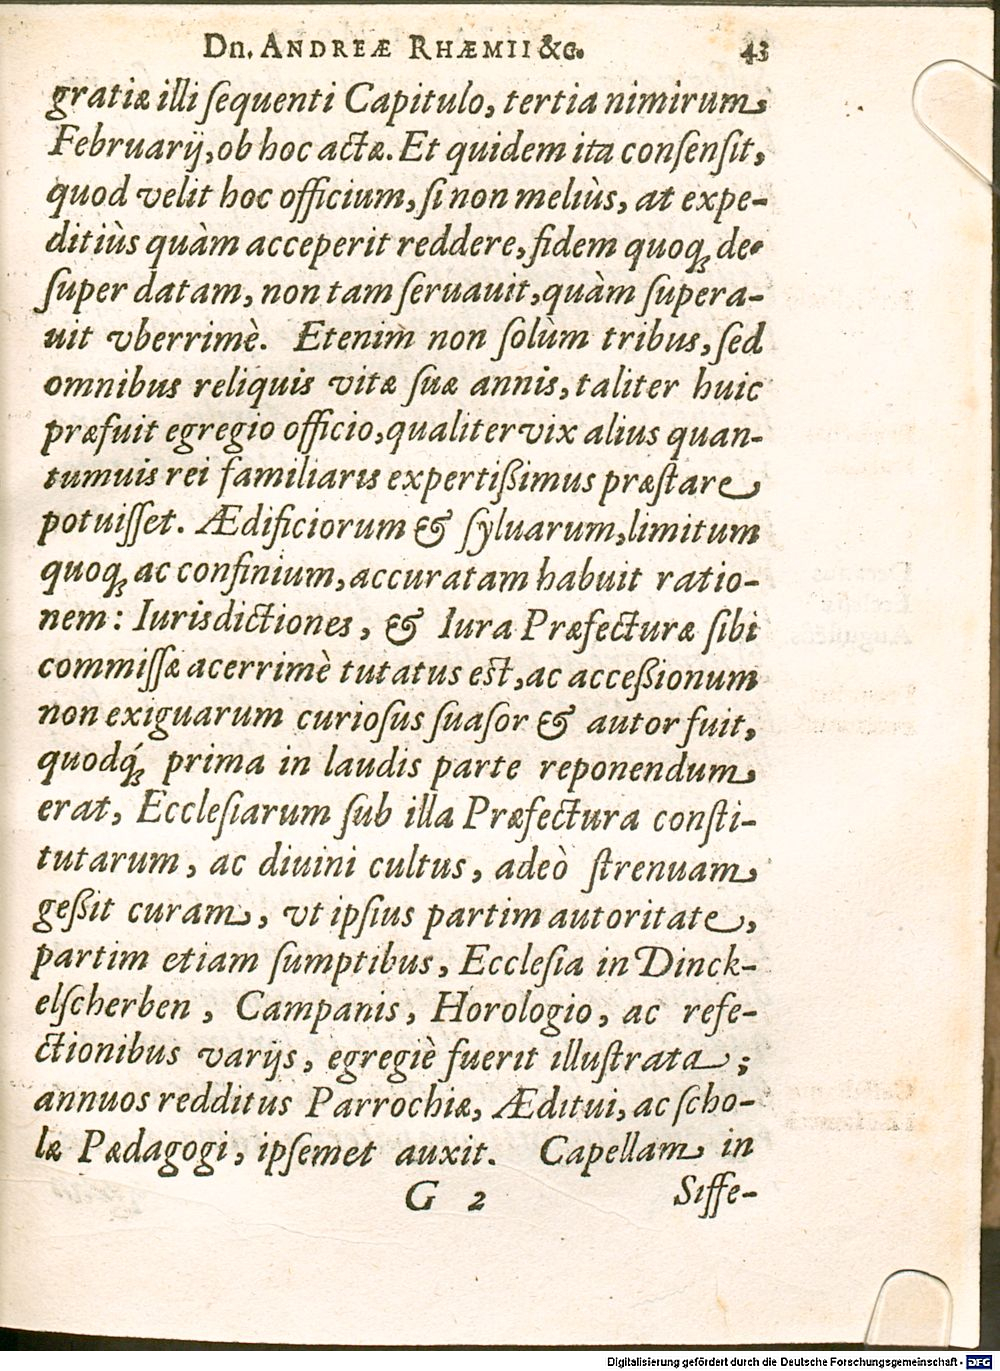 Dn. ANDREÆ RHÆMII &c. 43
gratiæ illi ſequenti Capitulo, tertia nimirum,
Februarij, ob hoc actæ. Et quidem ita conſenſit,
quod velit hoc officium, ſi non meliùs, at expe-
ditiùs quàm acceperit reddere, fidem quoq; de-
ſuper datam, non tam ſeruauit, quàm ſupera-
uit vberrimè. Etenim non ſolùm tribus, ſed
omnibus reliquis vitæ ſuæ annis, taliter huic
præfuit egregio officio, qualiter vix alius quan-
tumuis rei familiaris expertißimus præſtare
potuiſſet. Ædificiorum & ſyluarum, limitum
quoq; ac confinium, accuratam habuit ratio-
nem: Iurisdictiones, & Iura Præfecturæ ſibi
commiſſæ acerrimè tutatus eſt, ac acceßionum
non exiguarum curioſus ſuaſor & autor fuit,
quodq́; prima in laudis parte reponendum
erat, Eccleſiarum ſub illa Præfectura conſti-
tutarum, ac diuini cultus, adeò ſtrenuam
geßit curam, vt ipſius partim autoritate,
partim etiam ſumptibus, Eccleſia in Dinck-
elſcherben, Campanis, Horologio, ac refe-
ctionibus varijs, egregiè fuerit illuſtrata;
annuos redditus Parrochiæ, Æditui, ac ſcho-
læ Pædagogi, ipſemet auxit. Capellam in
G 2 Siffe-
Digitalisierung gefördert durch die Deutsche Forschungsgemeinschaft - DFG